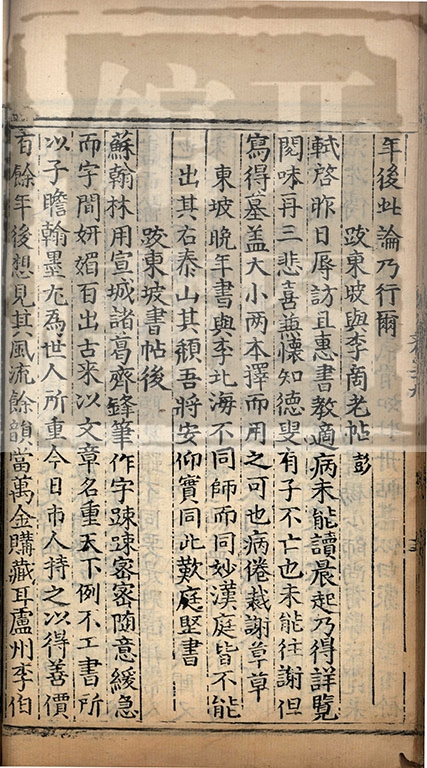 年後此論乃行爾
跋東坡與李商老帖彭
軾啓昨日辱訪且惠書教適病未能讀晨起乃得詳覽
閱味再三悲喜兼懷知德叟有子不亡也未能往謝但
寫得墓盖大小兩本擇而用之可也病倦裁謝草草
東坡晚年書與李北海不同師而同妙漢庭皆不能
出其右泰山其頹吾將安仰實同此歎庭堅書
跋東坡書帖後
蘇翰林用宣城諸葛齊鋒筆作字踈踈密密隨意緩急
而字間妍媚百出古來以文章名重天下例不工書所
以子瞻翰墨尤爲世人所重今日市人持之以得善價
百餘年後想見其風流餘韻當萬金購藏耳廬州李伯